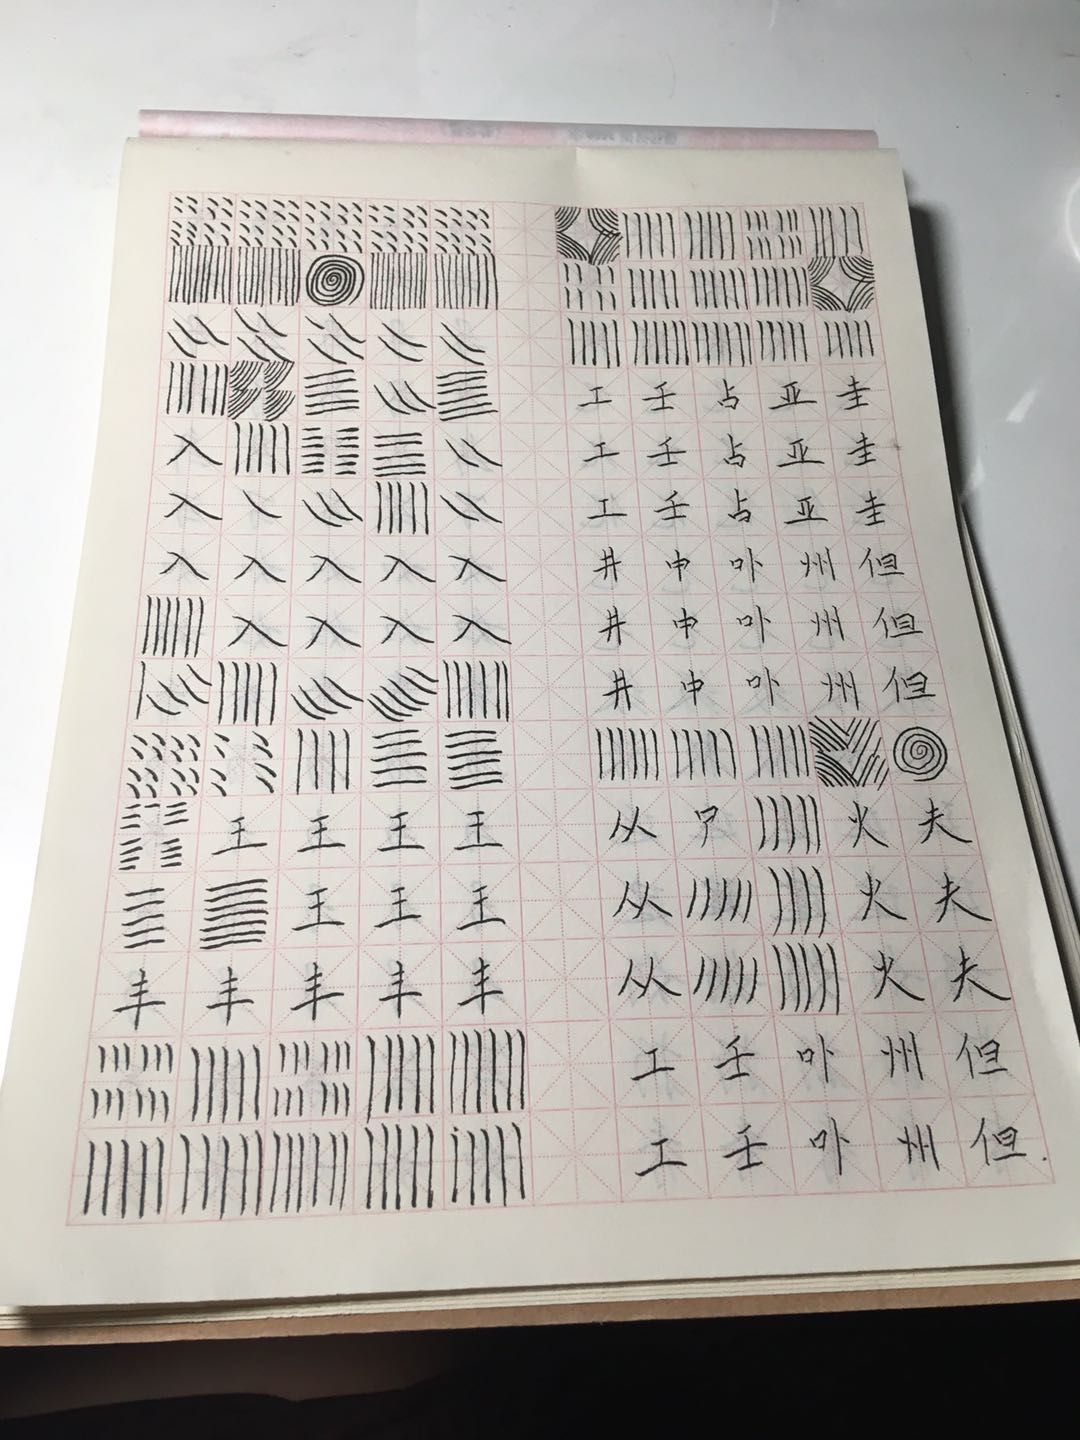 入
入
入 入 入 入 入
入 入 入 入
王 王 王 王
王 王 王
丰 丰 丰 丰 丰
工 壬 占 亚 圭
工 壬 占 亚 圭
工 壬 占 亚 圭
井 申 卟 州 但
井 申 卟 州 但
井 申 卟 州 但
从 火 夫
从 火 夫
从 火 夫
工 壬 卟 州 但
工 壬 卟 州 但.